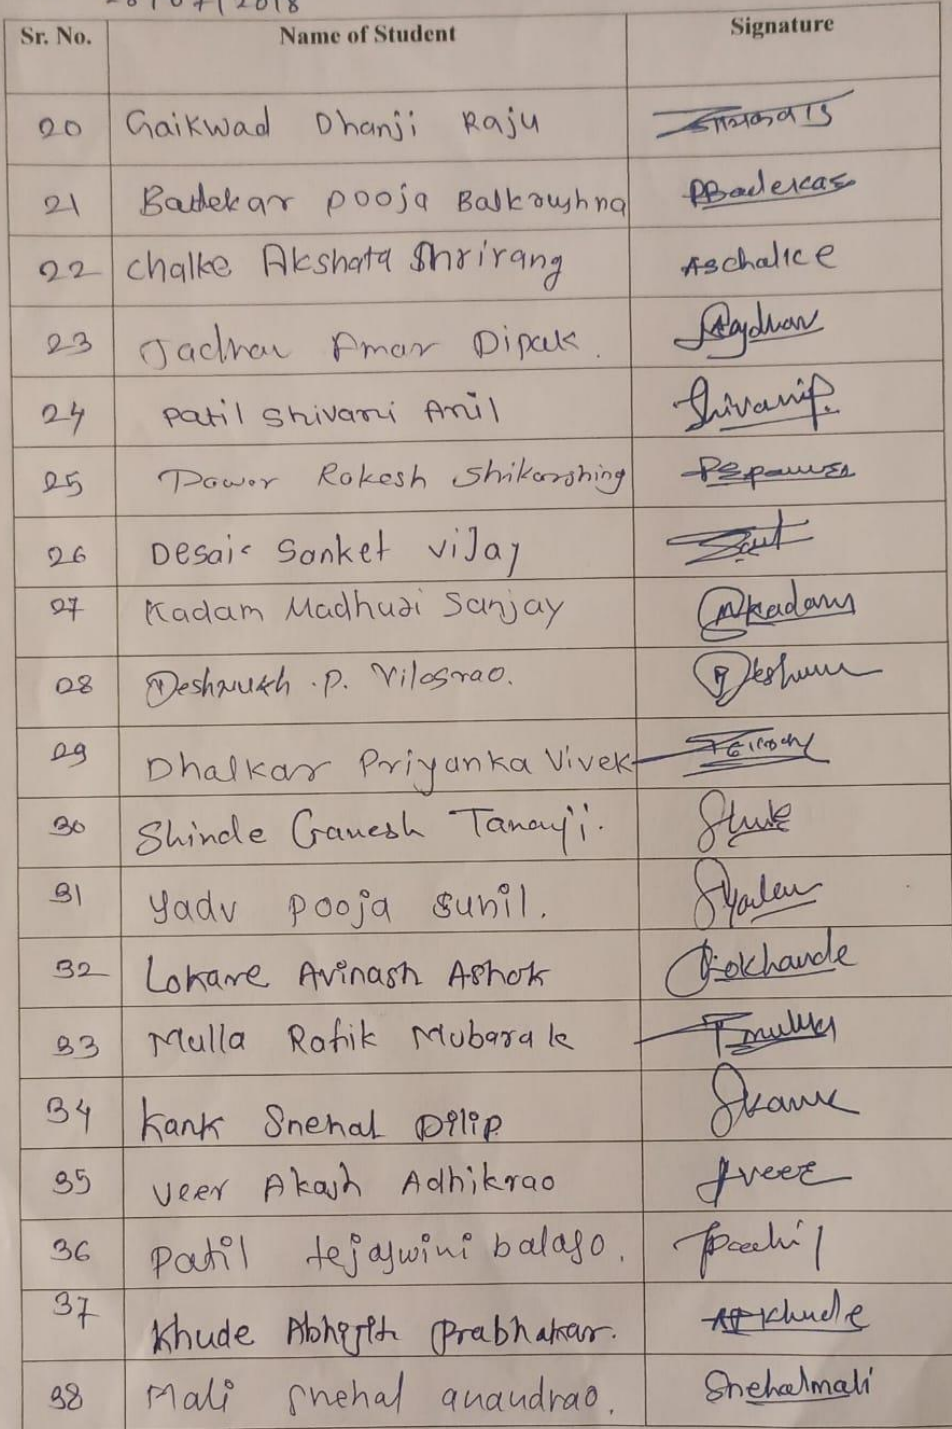 Sr. No. Name of Student Signature
20 Gaikwad Dhanji Raju
21 Badekar pooja Balkrushna PBadekar
22 Chalke Akshata Shrirang Aschalke
23 Jadhav Amar Dipak.
24 Patil Shivani Anil ShivaniP.
25 Pawar Rakesh Shikarshing
26 Desai Sanket vijay
27 Kadam Madhuri Sanjay Mkadam
28 Deshmukh .P. Vilasrao.
29 Dhalkar Priyanka Vivek
30 Shinde Ganesh Tanaji.
31 Yadv pooja sunil.
32 Lokare Avinash Ashok Lokhande
33 Mulla Rafik Mubarak
34 Kank Snehal Dilip Skank
35 Veer Akash Adhikrao Aveer
36 Patil tejaswini balaso.
37 Khude Abhijith Prabhakar. APKhude
38 Mali snehal anandrao. Snehalmali